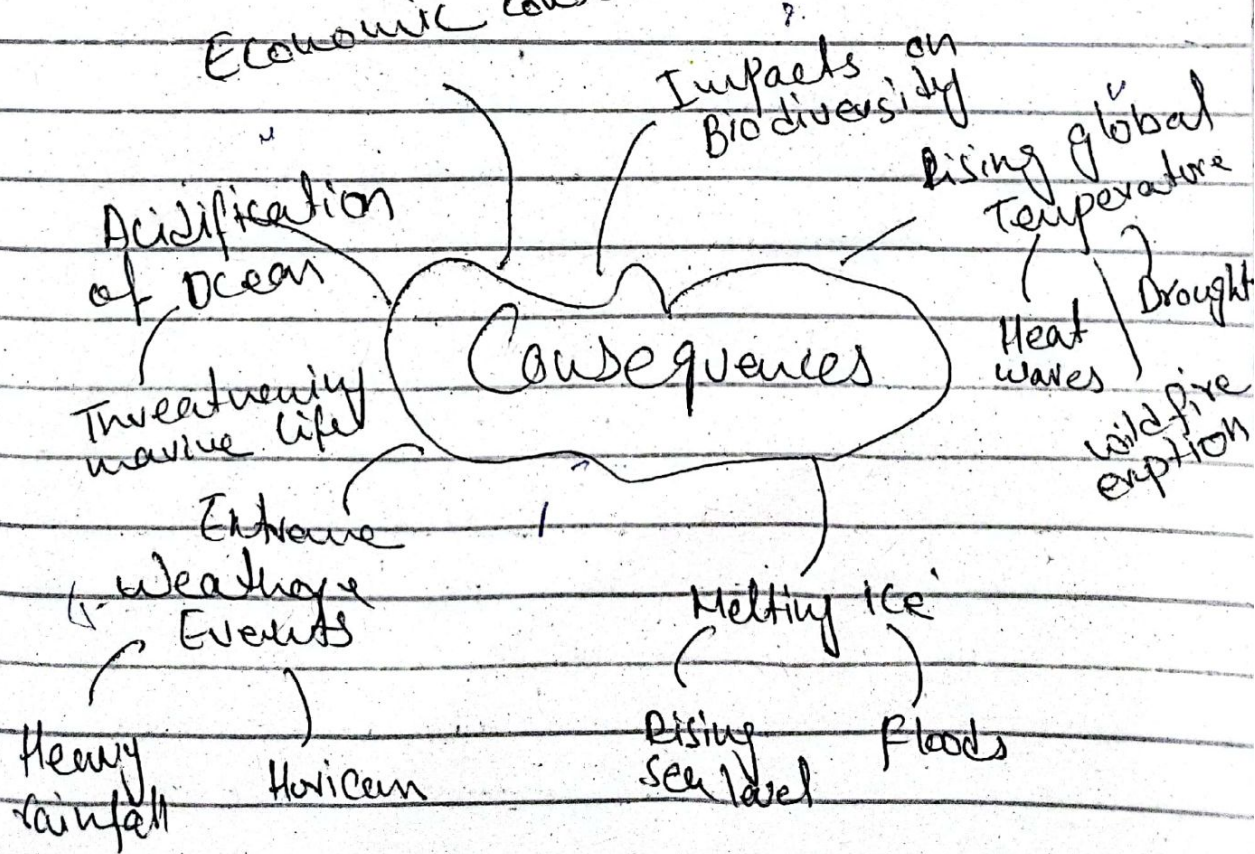 Economic
Impacts on
Biodiversity
Rising global
Temperature
Heat
waves
Drought
wildfire
eruption
Acidification
of Ocean
Threatuening
marine life
Consequences
Extreme
Weathere
Events
Heavy
rainfall
Huricam
Melting ice
Rising
sea level
Floods